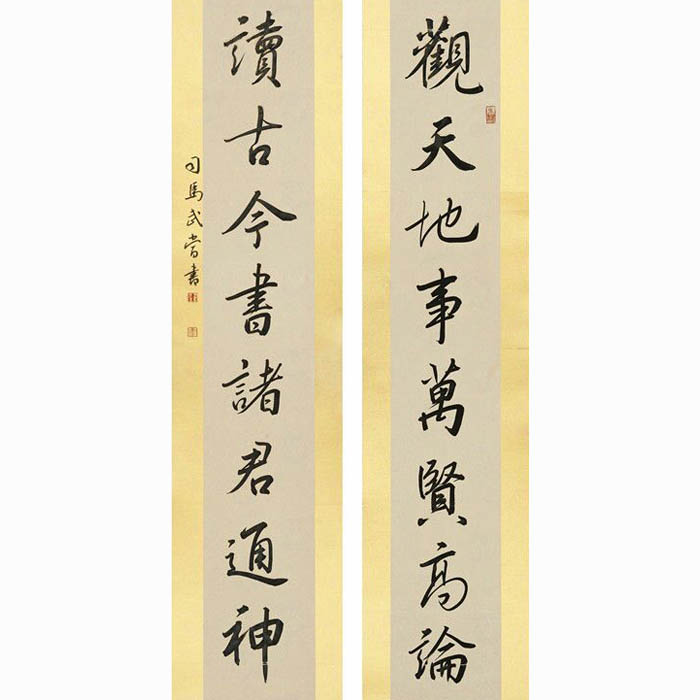 觀天地事萬賢高論
讀古今書諸君通神
司馬武當書